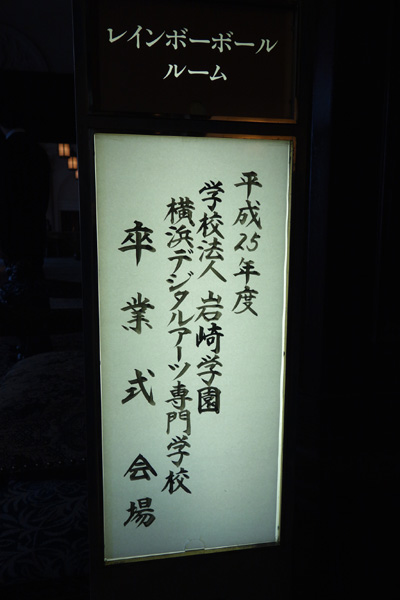 レインボーボール
ルーム
平成25年度
学校法人 岩崎学園
横浜デジタルアーツ専門学校
卒業式会場